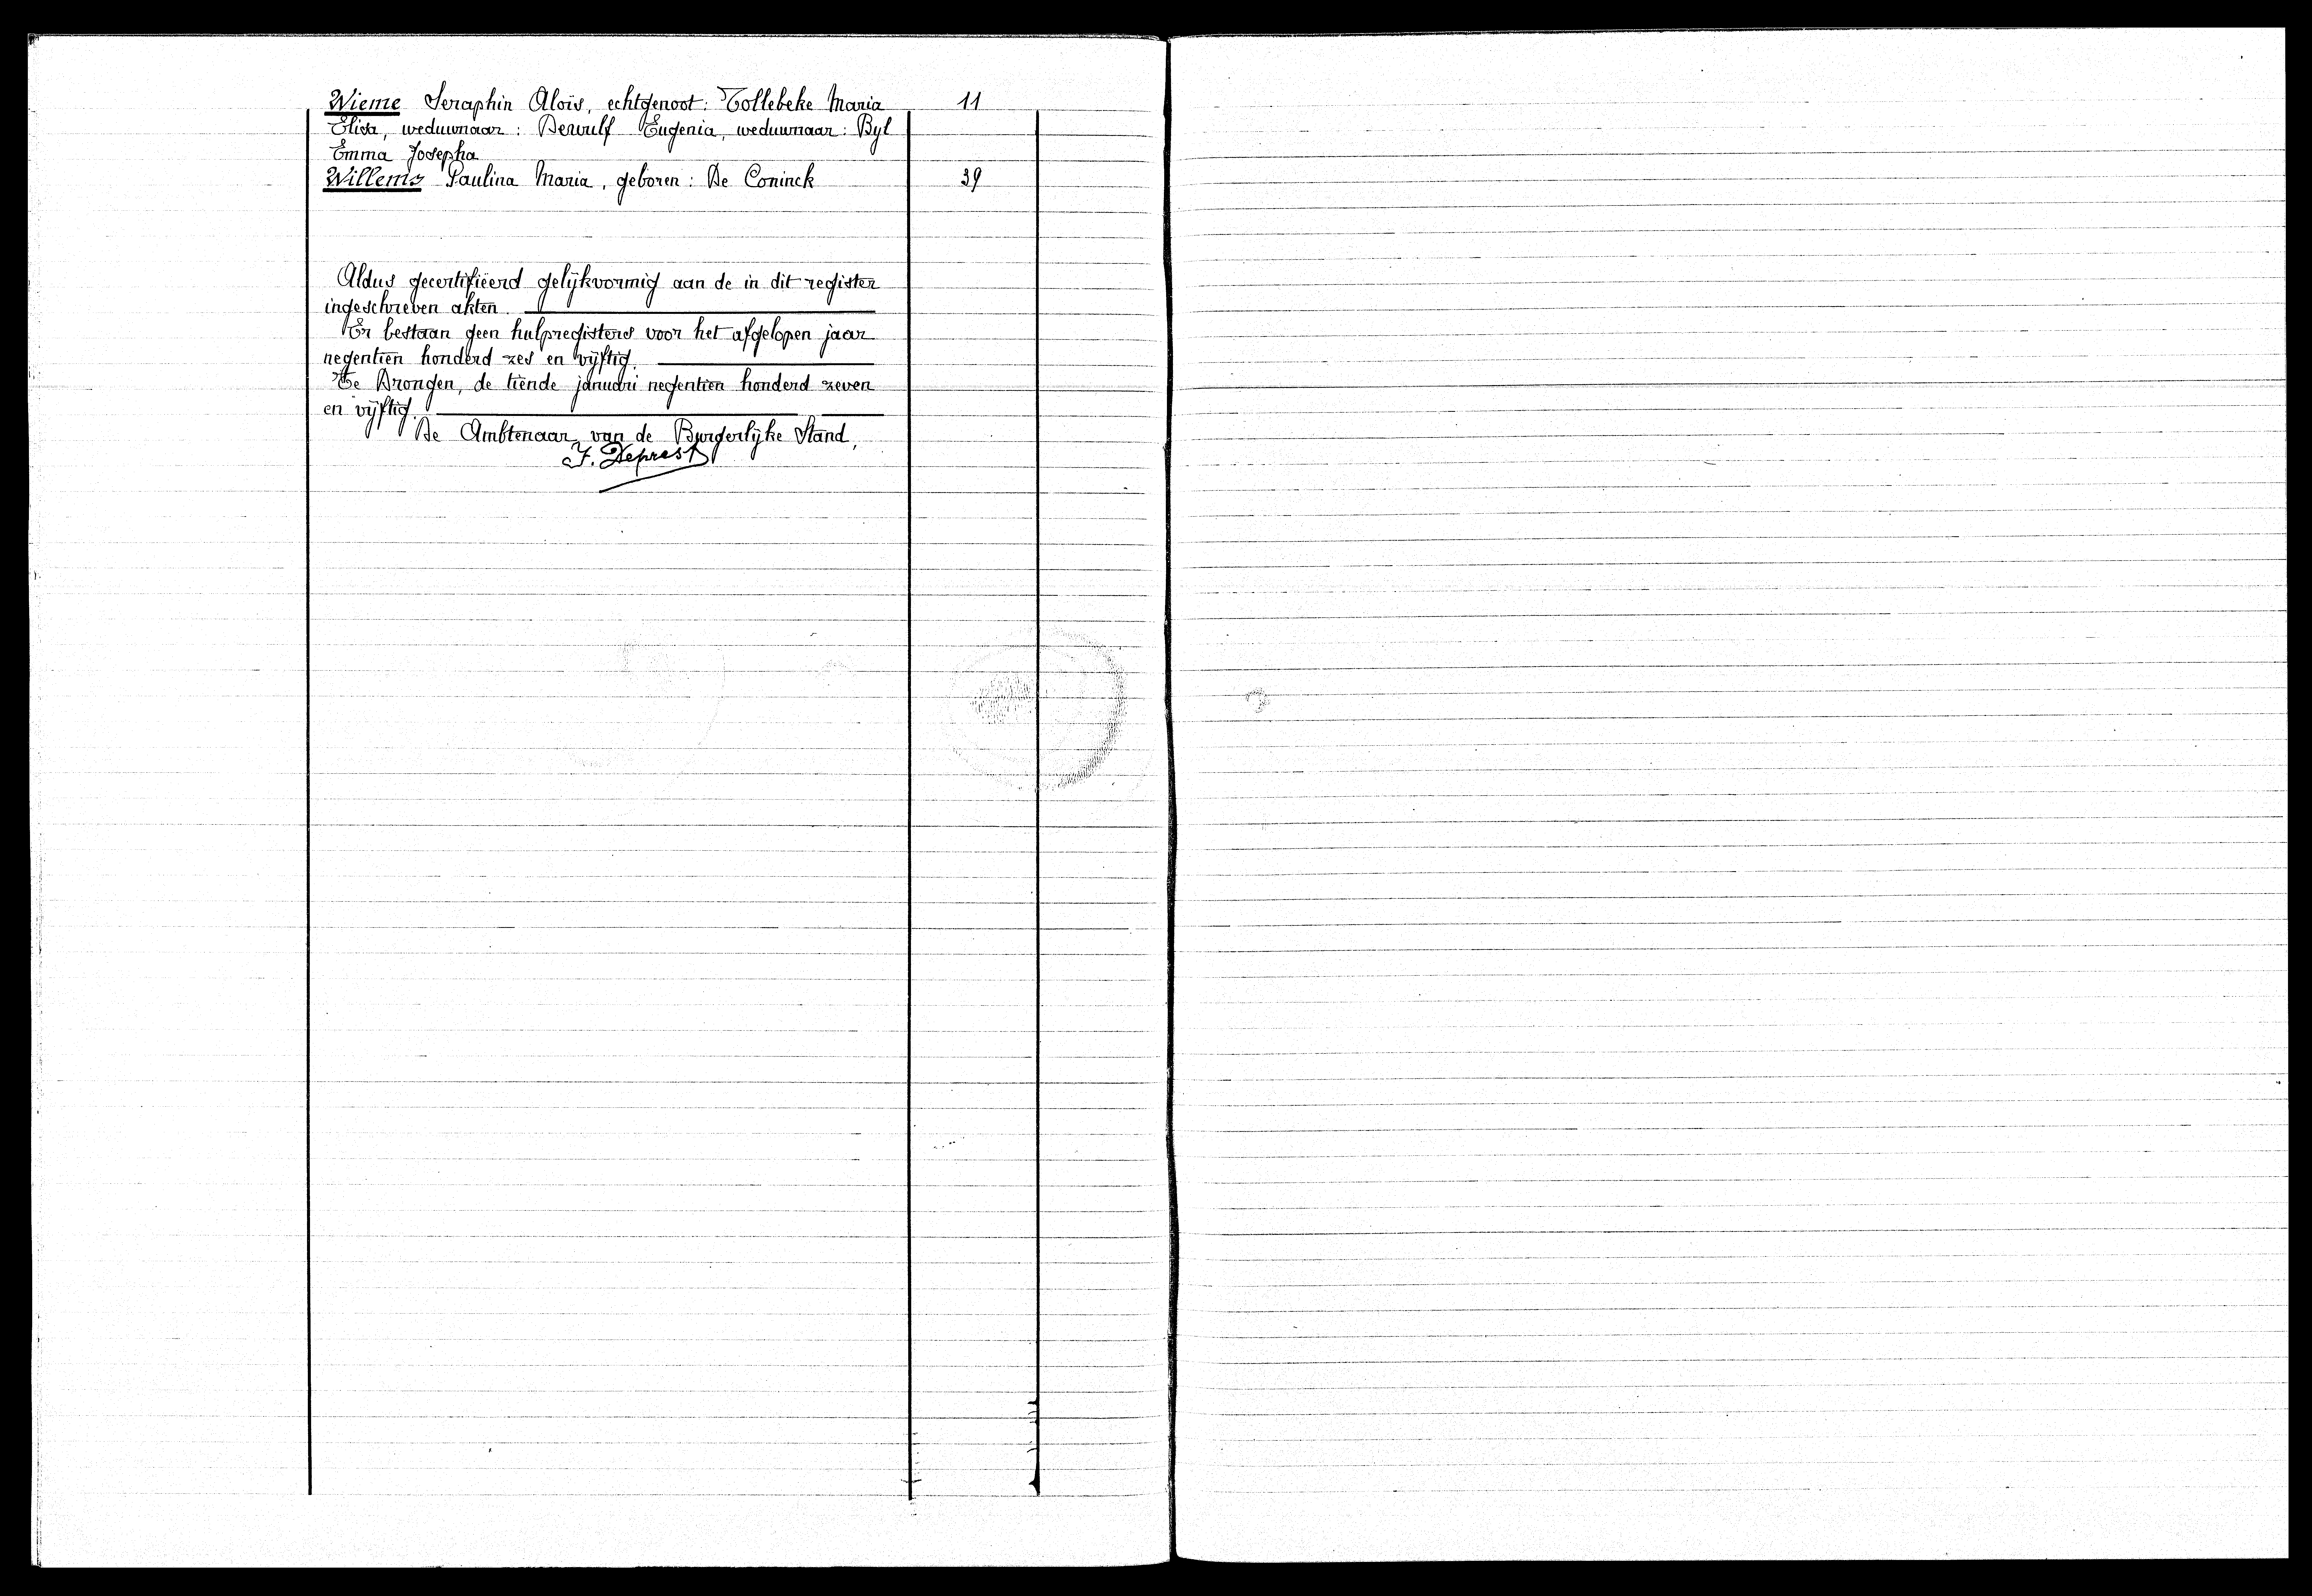 Wieme Seraphin Aloïs, echtgenoot: Tollebeke Maria 11
Elisa, weduwnaar: Dewulf Eugenia, weduwnaar: Byl
Emma Josepha
Willems Paulina Maria, geboren: De Coninck 39
Aldus gecertifieerd gelijkvormig aan de in dit register
ingeschreven akten.
Er bestaan geen hulpregisters voor het afgelopen jaar
negentien honderd zes en vijftig.
Te Drongen, de tiende januari negentien honderd zeven
en vijftig.
De Ambtenaar van de Burgerlijke Stand,
J. Deprest